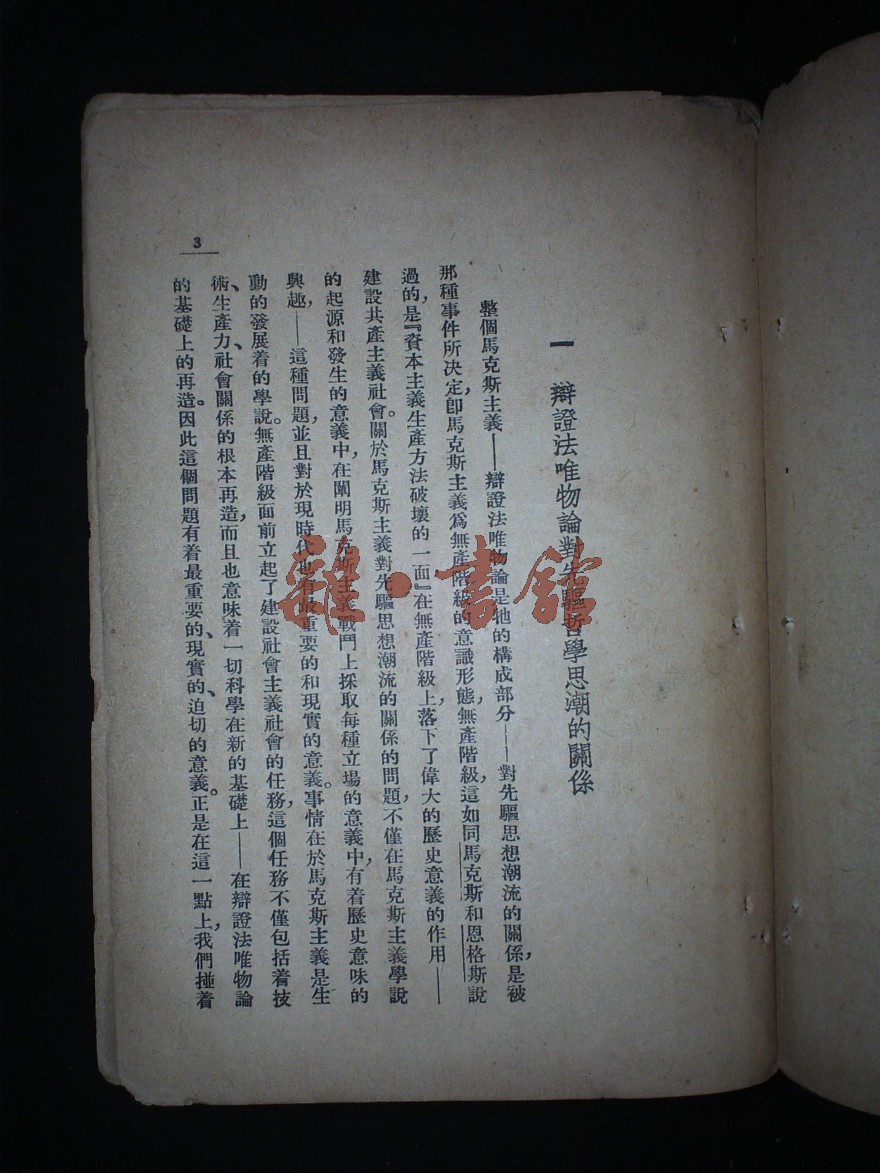 一 辯證法唯物論對先驅哲學思潮的關係
整個馬克斯主義——辯證法唯物論是牠的構成部分——對先驅思想潮流的關係，是被
那種事件所決定，卽馬克斯主義爲無產階級的意識形態，無產階級，這如同馬克斯和恩格斯說
過的，是『資本主義生產方法破壞的一面』在無產階級上，落下了偉大的歷史意義的作用——
建設共產主義社會。關於馬克斯主義對先驅思想潮流的關係的問題，不僅在馬克斯主義學說
的起源和發生的意義中，在闡明馬克斯主義戰鬥上採取每種立場的意義中，有着歷史意味的
興趣，——這種問題，並且對於現時代也有最重要的和現實的意義。事情在於馬克斯主義是生
動的發展着的學說。無產階級面前立起了建設社會主義社會的任務，這個任務不僅包括着技
術、生產力、社會關係的根本再造，而且也意味着一切科學在新的基礎上——在辯證法唯物論
的基礎上的再造。因此這個問題有着最重要的、現實的、迫切的意義。正是在這一點上，我們撞着
3
·書館